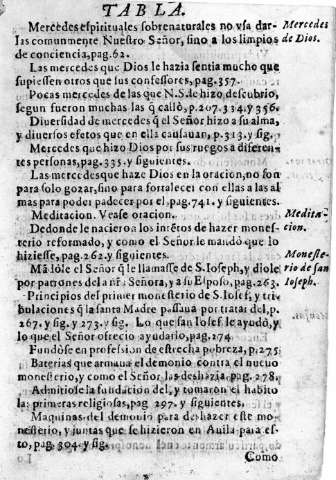 TABLA.
Mercedes espirituales sobrenaturales no vsa dar-
las comunmente Nuestro Señor, sino a los limpios
de conciencia, pag. 62.
Mercedes
de Dios.
Las mercedes que Dios le hazia sentia mucho que
supiessen otros que sus confessores, pag. 357.
Pocas mercedes de las que N. S. le hizo descubrio,
segun fueron muchas las q̃ callò, p. 207. 334. y 356.
Diuersidad de mercedes q̃ el Señor hizo a su alma,
y diuersos efetos que en ella causauan, p. 313. y sig.
Mercedes que hizo Dios por sus ruegos a diferen
tes personas, pag. 335. y siguientes.
Las mercedes que haze Dios en la oracion, no son
para solo gozar, sino para fortalecer con ellas a las al
mas para poder padecer por el. pag. 741. y siguientes.
Meditacion. Vease oracion.
Medita-
cion.
De donde le nacieron los intẽtos de hazer mones-
terio reformado, y como el Señor le mandò que lo
hiziesse, pag. 262. y siguientes.
Moneste-
rio de san
Ioseph.
Mãdóle el Señor q̃ le llamasse de S. Ioseph, y diole
por patrones del a nr̃a Señora, y a su Esposo, pag. 263.
Principios del primer monesterio de S. Iosef, y tri
bulaciones q̃ la santa Madre passaua por tratar del, p.
267. y sig. y 273. y sig. Lo que san Iosef le ayudó, y
lo que el Señor ofrecio ayudarlo, pag. 274.
Fundóse en profession de estrecha pobreza, p. 275.
Baterias que armaua el demonio contra el nueuo
monesterio, y como el Señor las deshazia, pag. 278.
Admitiose la fundacion del, y tomaron el habito
las primeras religiosas, pag. 297. y siguientes.
Maquinas del demonio para deshazer este mo-
nesterio, y juntas que se hizieron en Auila para es-
to, pag. 304. y sig.
Como